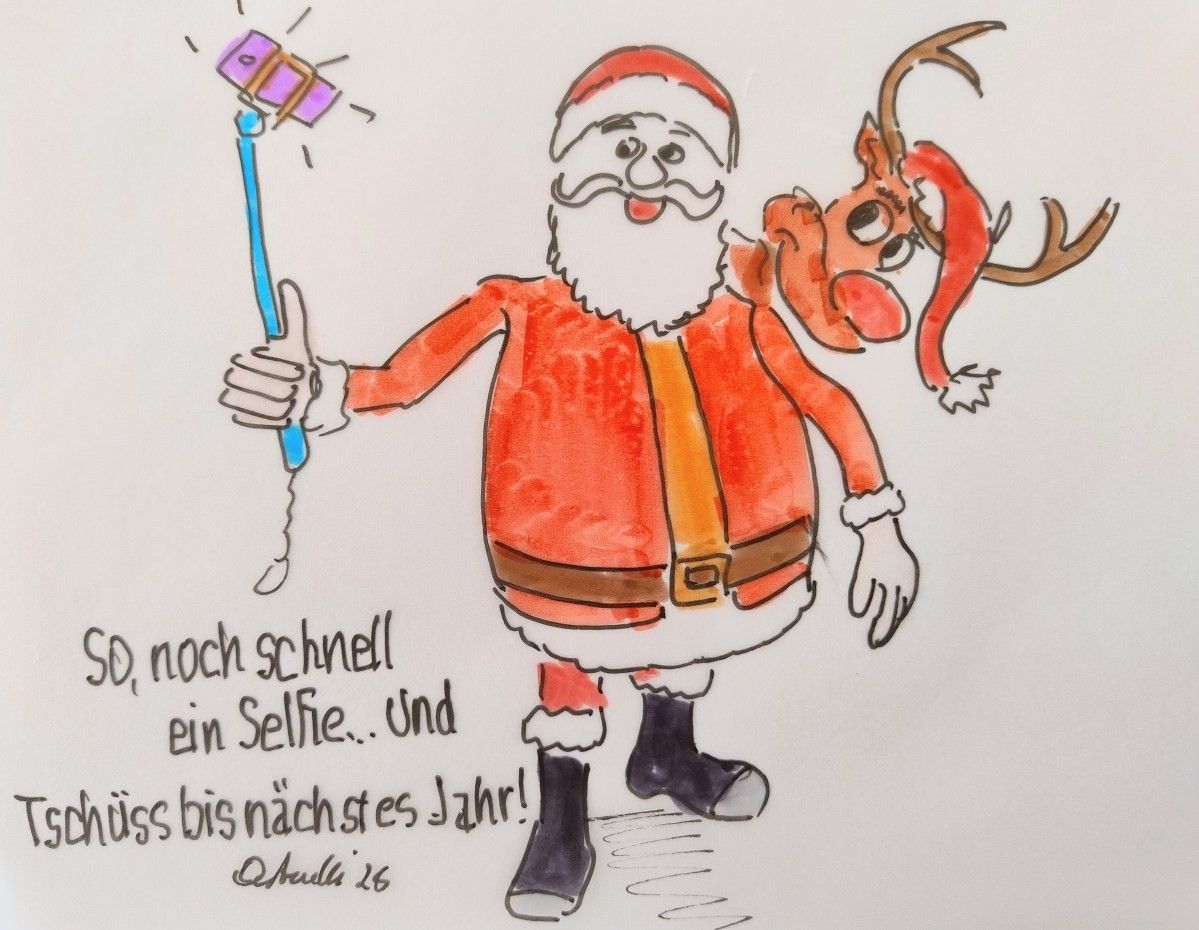 So, noch schnell
ein Selfie... Und
Tschüss bis nächstes Jahr!
'26